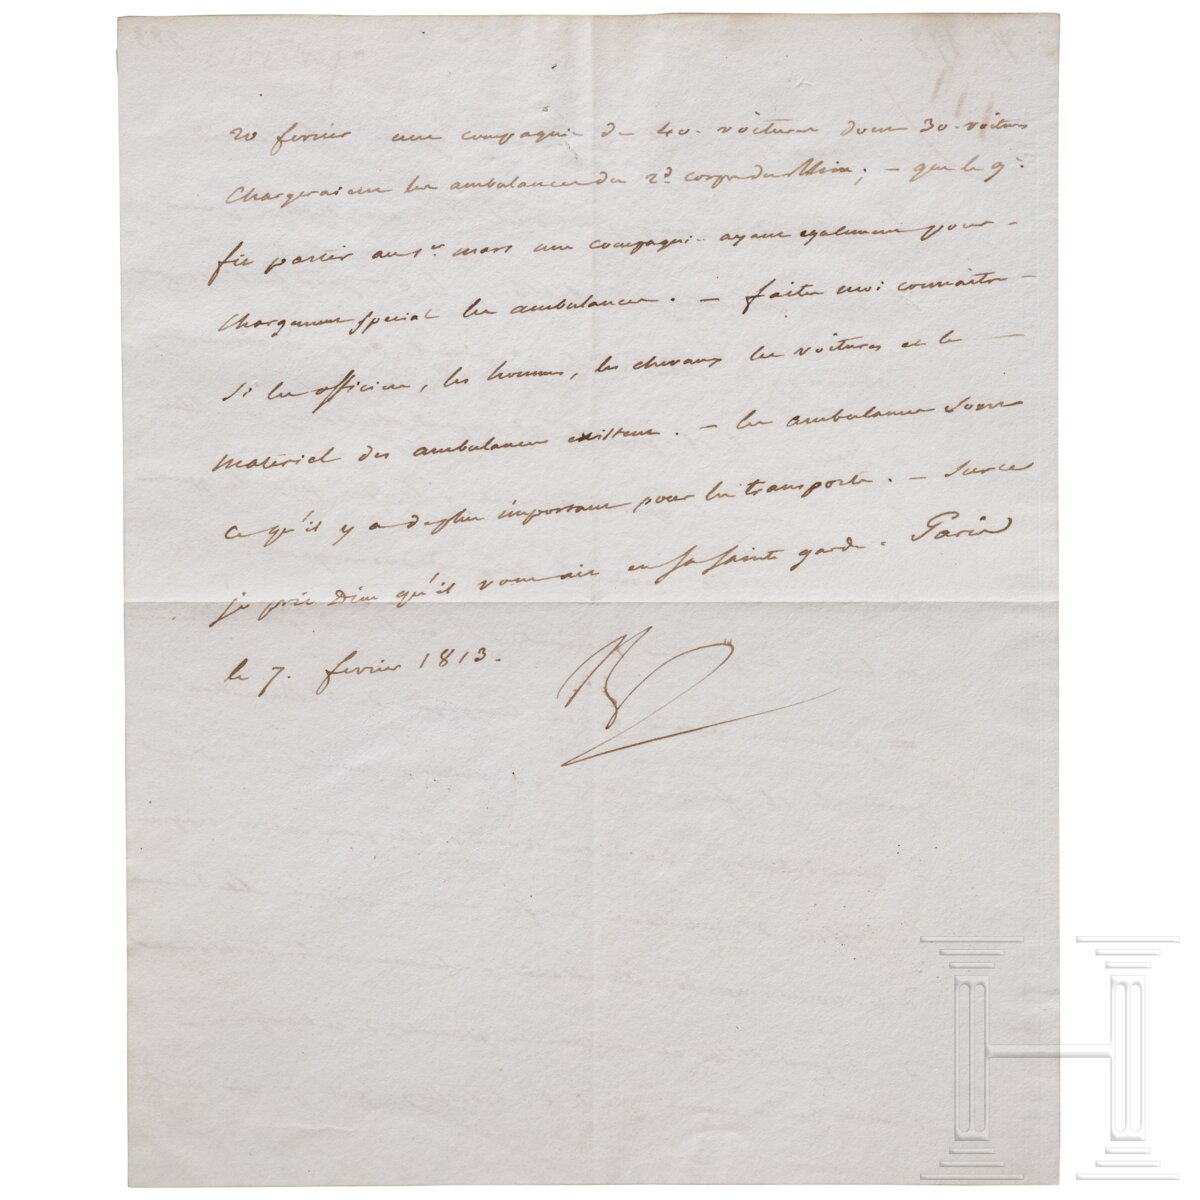 20 fevrier une compagnie de 40. voitures dont 30. voitures
Chargeraient les ambulances du 2d. corps du Rhin; – que le 9e.
fit partir au 1er. mars une compagnie ayant egalement pour –
Chargement special les ambulances. – faites moi connaitre –
Si les officiers, les hommes, les chevaux les voitures et le –
Materiel des ambulances existent. – les ambulances sont
ce qu'il y a de plus important pour les transports. – Sur ce
je prie Dieu qu'il vous ait en sa sainte garde. Paris
le 7. fevrier 1813.